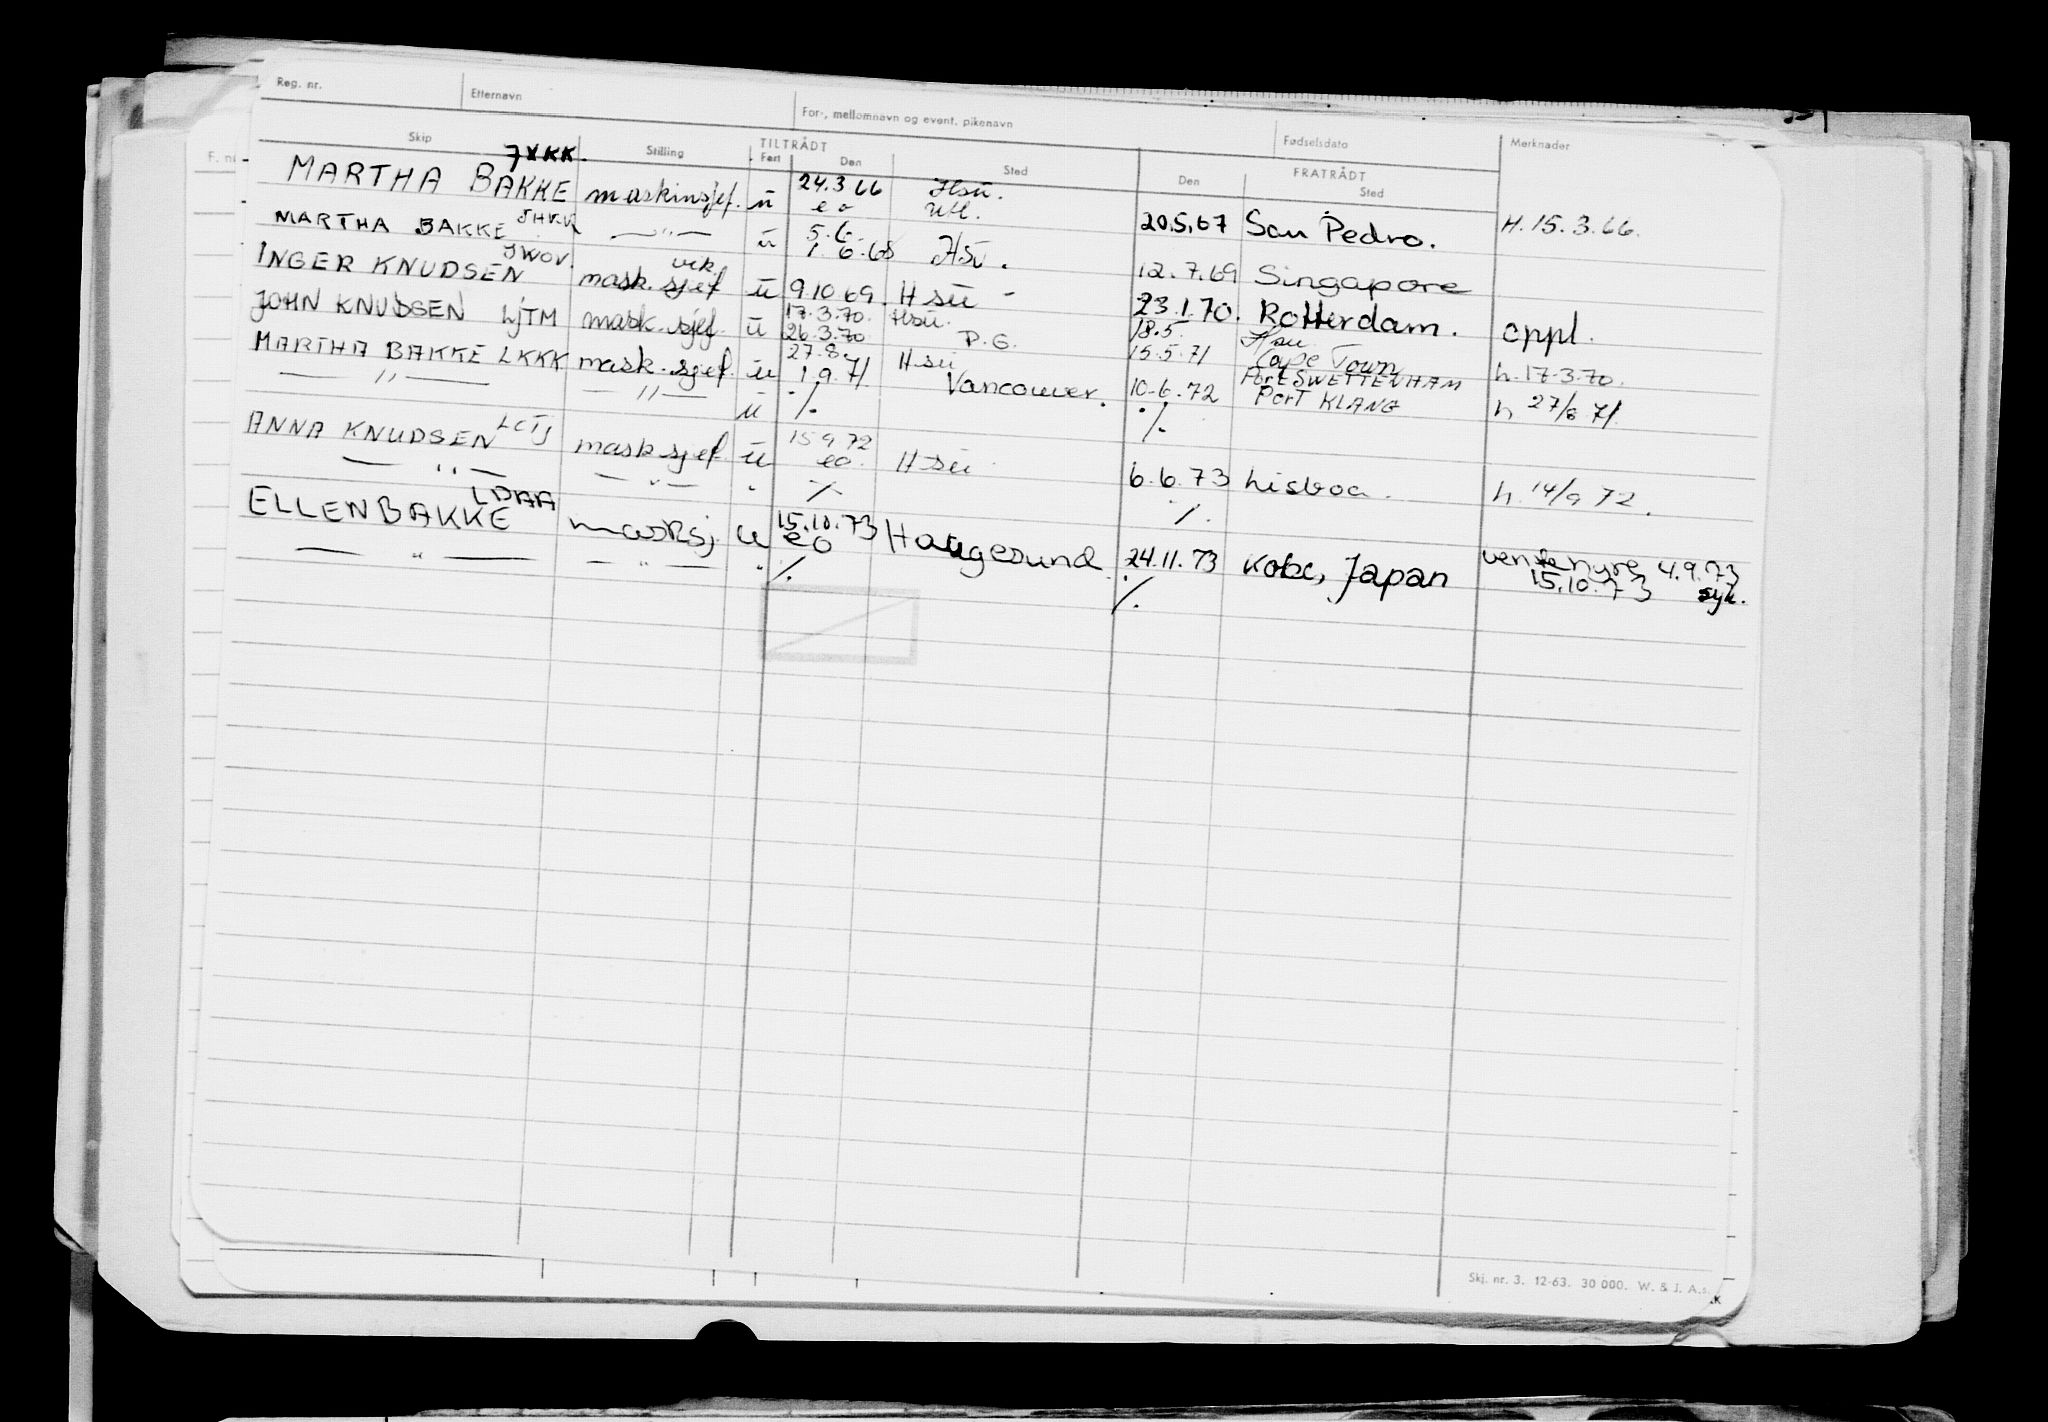 Reg. nr. Etternavn For-, mellomnavn og event. pikenavn Fødselsdato Merknader
Skip Stilling TILTRÅDT FRATRÅDT
Fart Den Sted Den Sted
MARTHA BAKKE maskinsjef. ü 24.3 66 Hsü. 20.5.67 San Pedro. H. 15.3.66.
eo utl.
MARTHA BAKKE —"— ü 5.6. 1.6.68 Hsü. 12.7.69 Singapore
INGER KNUDSEN JWOV. vik. mask. sjef ü 9.10 69. Hsü - 23.1.70. Rotterdam. oppl.
JOHN KNUDSEN LJTM mask. sjef. ü 17.3.70. Hsü. 18.5. Hsü
26.3.70 P.G. 15.5.71 Cape Town h. 17.3.70.
MARTHA BAKKE LKKK mask. sjef. ü 27.8. Hsü 10.6.72 Port SWETTENHAM h 27/8 71.
1.9.71 Vancouver. Port KLANG
—"— —"— ü ./. ./.
ANNA KNUDSEN LCTJ mask sjef. ü 15 9 72 Hsü 6.6.73 Lisboa. h. 14/9 72.
eo.
—"— —"— " ./. ./.
ELLEN BAKKE LDAA masksj. u 15.10.73 Haugesund 24.11.73 Kobe, Japan 4.9.73
eo 15.10.73 syk.
—"— —"— " ./. ./.
Skj. nr. 3. 12-63. 30 000. W. & J. A.s.
F. nr